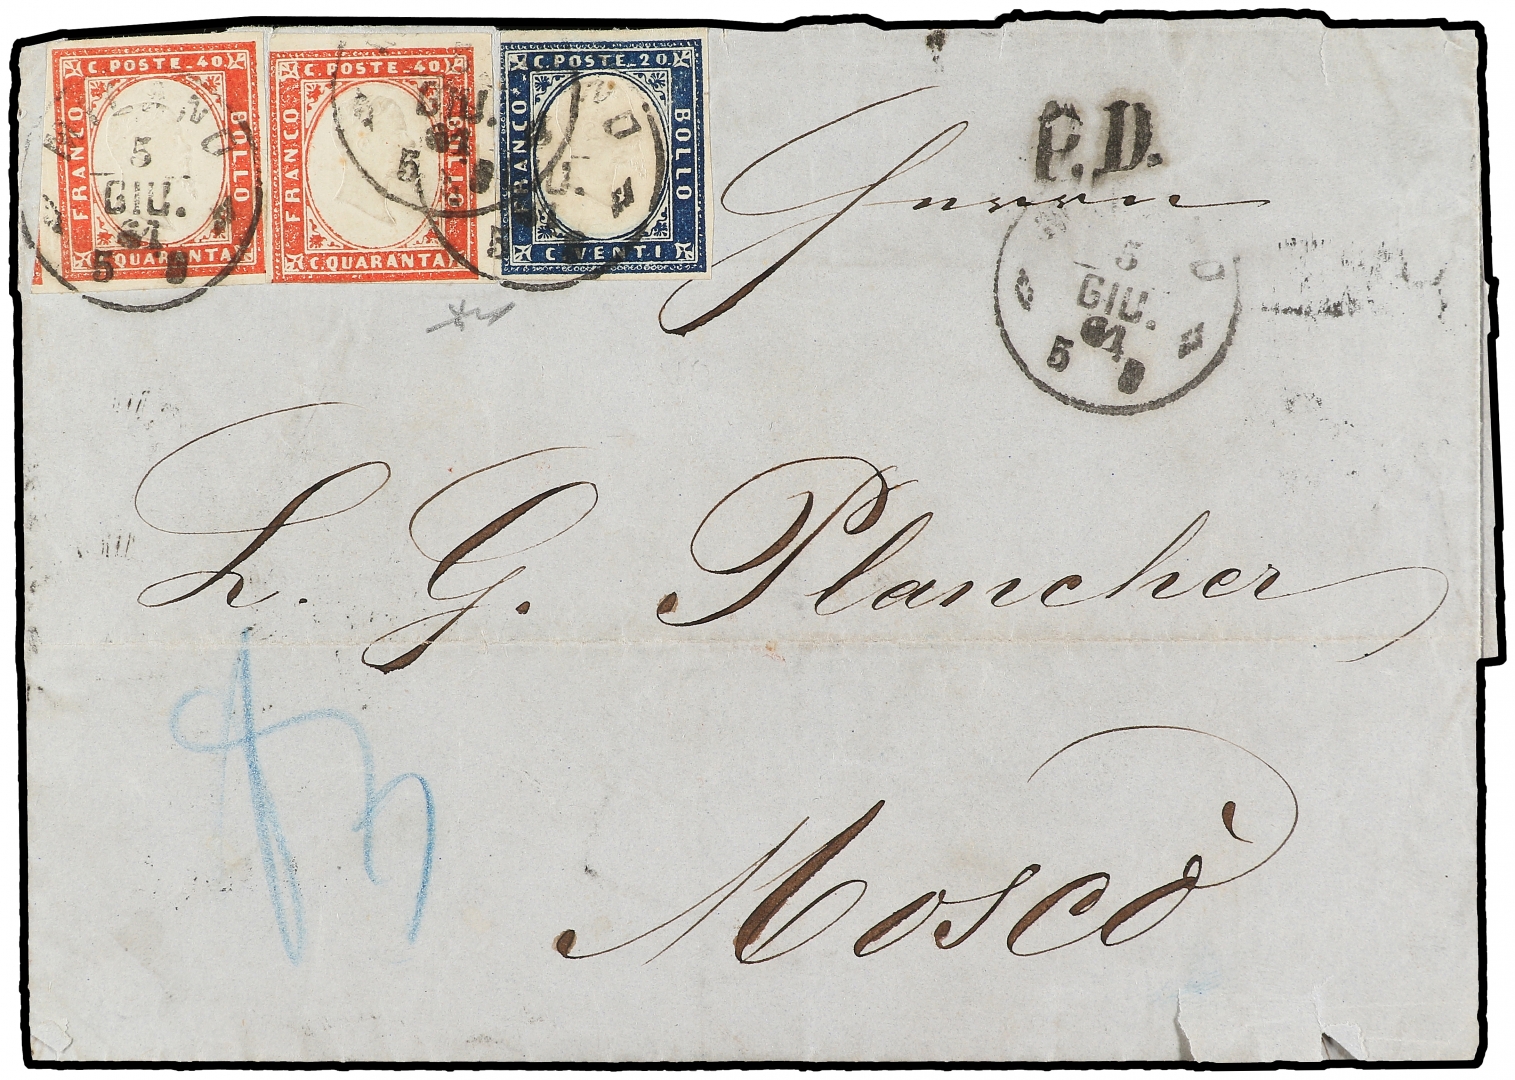 C. POSTE 40
FRANCO
BOLLO
C. QUARANTA
C. POSTE 40
FRANCO
BOLLO
C. QUARANTA
C. POSTE 20
FRANCO
BOLLO
C. VENTI
MILANO
5
GIU.
61
5 9
GIU.
61
5 9
P.D.
5
GIU.
61
5 9
Herren
L. G. Plancher
Moscò